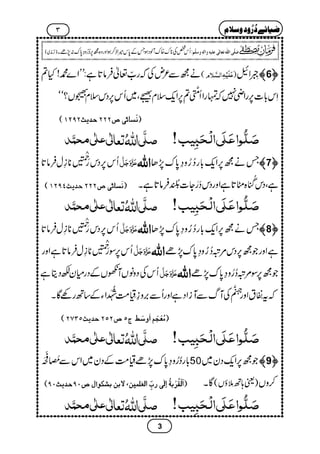 ضیائے دُرُود و سلام
۳
فرمانِ مصطفےٰ صلی اللہ تعالٰی علیہ والہ وسلم
﴿6﴾ جبرائیل (عَلَیْہِ السَّلَام) نے مجھ سے عرض کی کہ ربّ تعالٰی فرماتا ہے: ’’اے محمد! کیا تم
اس بات پر راضی نہیں کہ تمہارا اُمّتی تم پر ایک سلام بھیجے، میں اُس پر دس سلام بھیجوں؟‘‘
(نَسائی ص ۲۲۲ حدیث ۱۲۹۲)
صَلُّوا عَلَی الْحَبِیْب! صلَّی اللّٰہُ تعالٰی علٰی محمَّد
﴿7﴾ جس نے مجھ پر ایک بار دُرُودِ پاک پڑھا اللہ عَزَّوَجَلَّ اُس پر دس رَحمتیں نازِل فرماتا
ہے، دس گناہ مٹاتا ہے اور دس دَرَجات بُلند فرماتا ہے۔ (نَسائی ص ۲۲۲ حدیث ۱۲۹۴)
صَلُّوا عَلَی الْحَبِیْب! صلَّی اللّٰہُ تعالٰی علٰی محمَّد
﴿8﴾ جس نے مجھ پر ایک بار دُرُودِ پاک پڑھا اللہ عَزَّوَجَلَّ اُس پر دس رَحمتیں نازِل فرماتا
ہے اور جو مجھ پر دس مرتبہ دُرُودِ پاک پڑھے اللہ عَزَّوَجَلَّ اُس پر سو رَحمتیں نازِل فرماتا ہے اور
جو مجھ پر سو مرتبہ دُرُودِ پاک پڑھے اللہ عَزَّوَجَلَّ اُس کی دونوں آنکھوں کے درمیان لکھ دیتا ہے
کہ یہ نِفاق اور جہنَّم کی آگ سے آزاد ہے اور اُسے بروزِ قیامت شُہَداء کے ساتھ رکھے گا۔
(مُعْجَمُ اَوْسَط ج ۵ ص ۲۵۲ حدیث ۲۷۳۵)
صَلُّوا عَلَی الْحَبِیْب! صلَّی اللّٰہُ تعالٰی علٰی محمَّد
﴿9﴾ جو مجھ پر ایک دن میں 50 بار دُرُودِ پاک پڑھے قیامت کے دن میں اس سے مُصافَحہ
کروں (یعنی ہاتھ ملاؤں) گا۔ (اَلْقُرْبَةُ اِلٰی رَبِّ الْعٰلَمِیْن، لابن بشکوال ص ۹۰ حدیث ۹۰)
صَلُّوا عَلَی الْحَبِیْب! صلَّی اللّٰہُ تعالٰی علٰی محمَّد
3